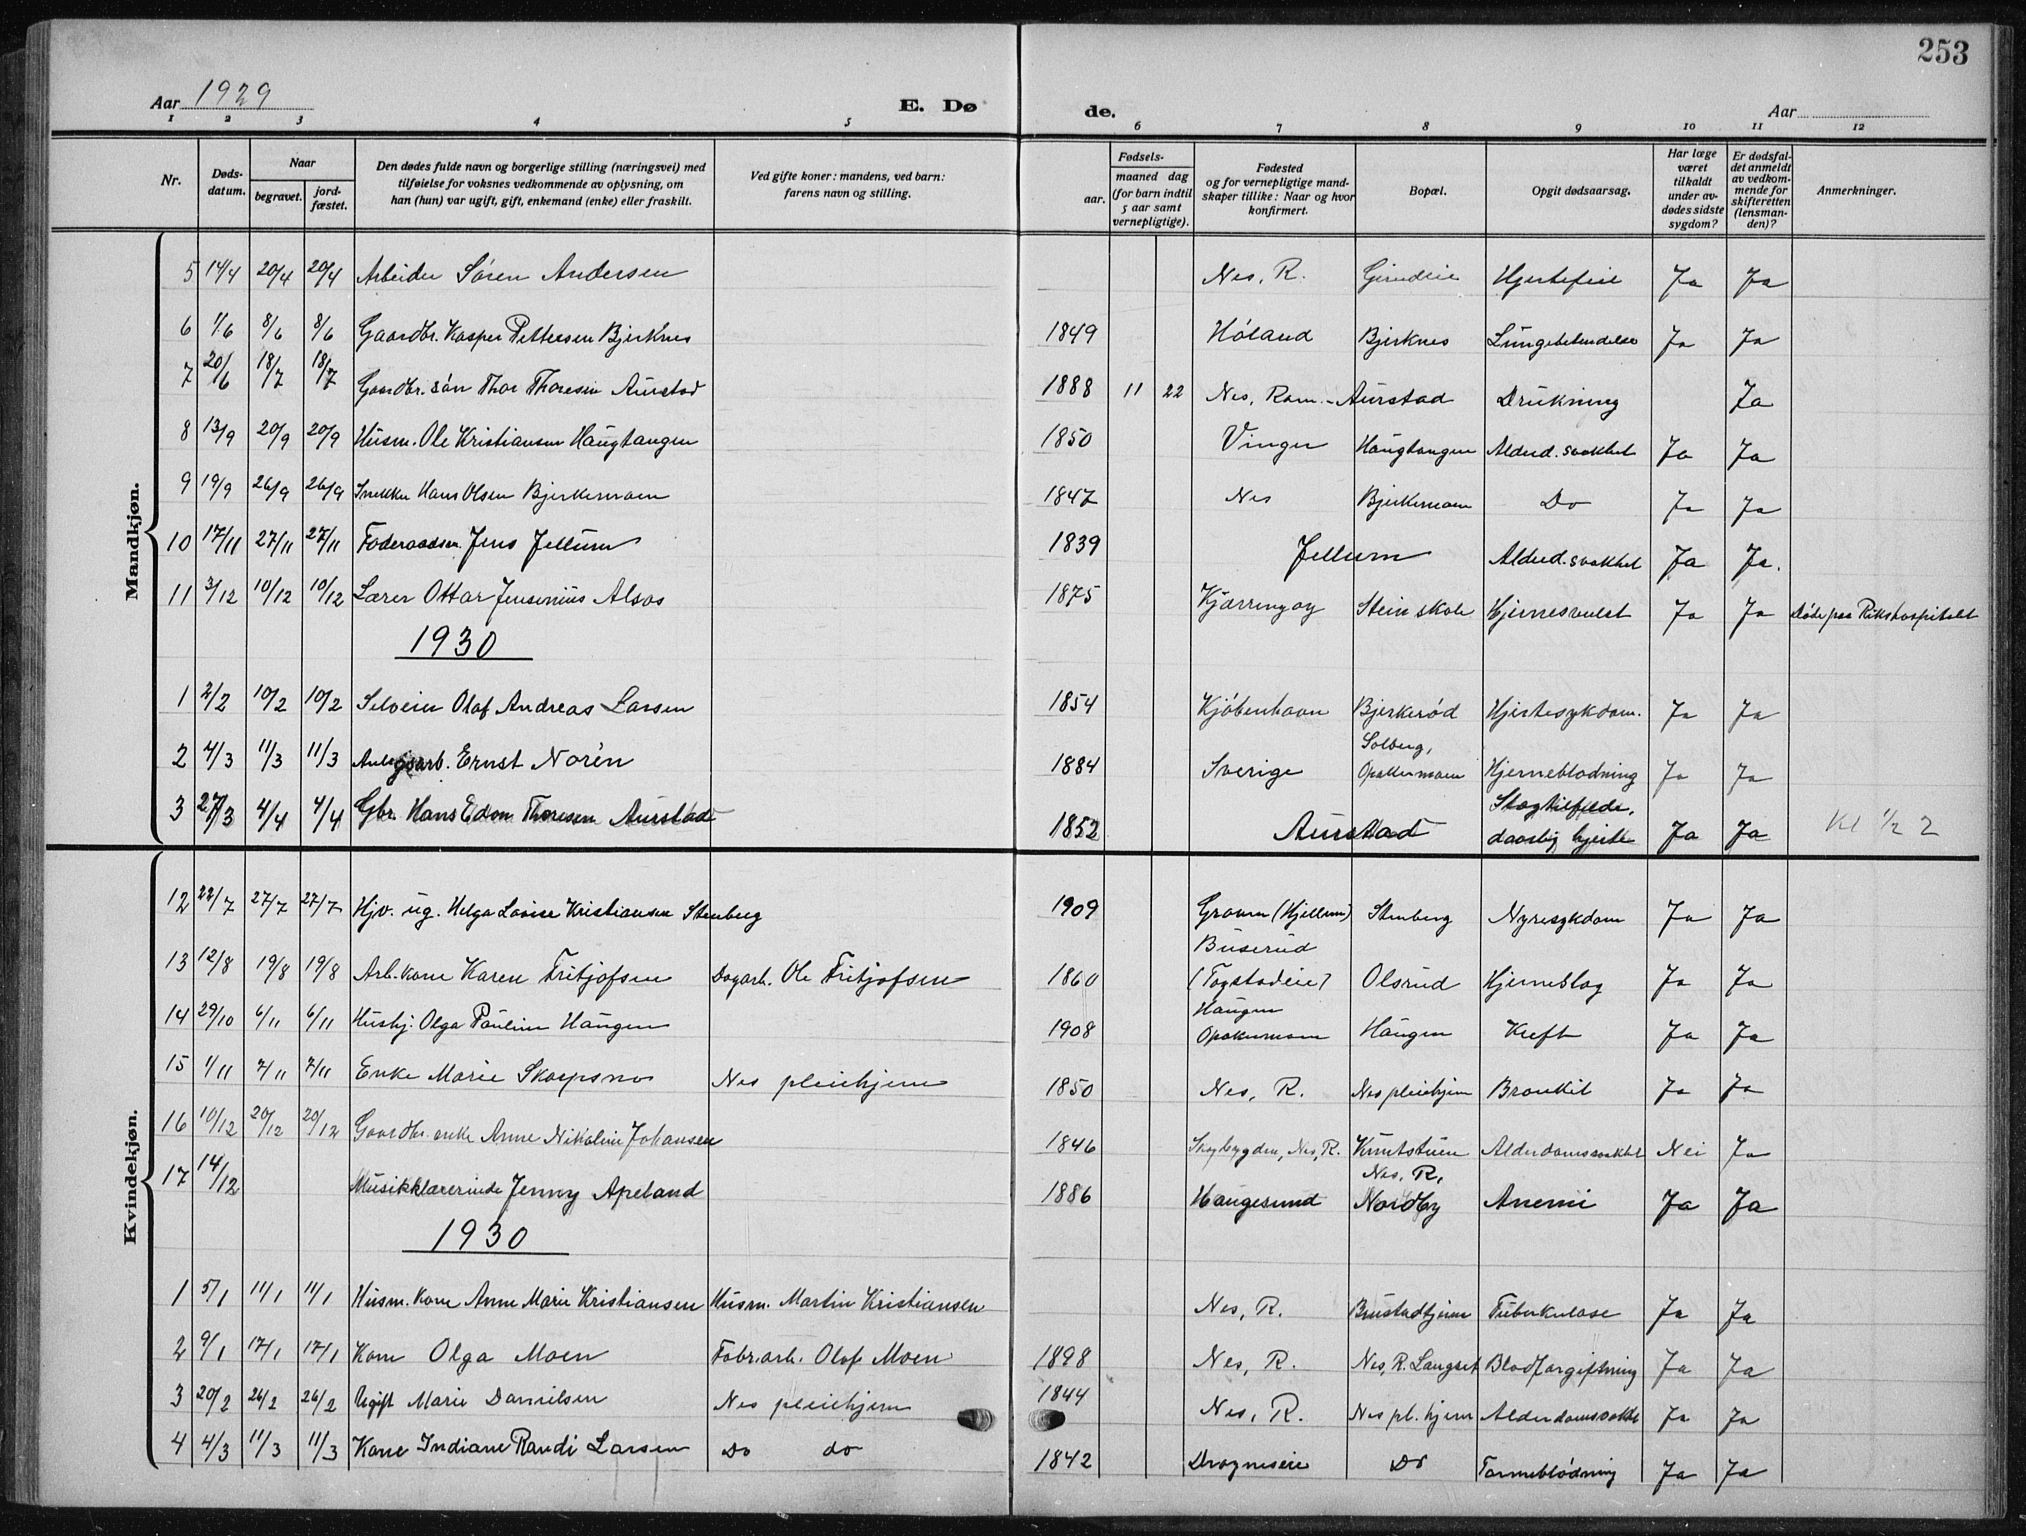 253
Aar 1929 E. Døde. Aar
1 2 3 4 5 6 7 8 9 10 11 12
Nr. | Døds-datum. | Naar begravet. | jord-fæstet. | Den dødes fulde navn og borgerlige stilling (næringsvei) med tilføielse for voksnes vedkommende av oplysning, om han (hun) var ugift, gift, enkemand (enke) eller fraskilt. | Ved gifte koner: mandens, ved barn: farens navn og stilling. | Fødsels- aar. | maaned dag (for barn indtil 5 aar samt vernepligtige). | Fødested og for vernepligtige mandskaper tillike: Naar og hvor konfirmert. | Bopæl. | Opgit dødsaarsag. | Har læge været tilkaldt under avdødes sidste sygdom? | Er dødsfaldet anmeldt av vedkommende for skifteretten (lensmanden)? | Anmerkninger.
Mandkjøn.
5 14/4 20/4 20/4 Arbeider Søren Andersen Nes, R. Hjertefeil Ja Ja
6 1/6 8/6 8/6 Gaardbr. Kasper Pettersen Bjerknes 1849 Høland Bjerknes Lungebetendelse Ja Ja
7 20/6 18/7 18/7 Gaardbr. søn Thor Thoresen Aurstad 1888 11 22 Nes, Rom. - Aurstad Drukning Ja
8 13/9 20/9 20/9 Husm. Ole Kristiansen Haugtangen 1850 Vinger Haugtangen Alderd. svakhet Ja Ja
9 19/9 26/9 26/9 Snekker Hans Olsen Bjerkemoen 1847 Nes Bjerkemoen Do Ja Ja
10 17/11 27/11 27/11 Føderaadsm. Jens Jellum 1839 Jellum Alderd. svakhet Ja Ja.
11 3/12 10/12 10/12 Lærer Ottar Jensenius Alsos 1875 Kjærringøy Stein skole Hjernesvulst Ja Ja Døde paa Rikshospitalet
1930
1 2/2 10/2 10/2 Selveier Olaf Andreas Larsen 1854 Kjøbenhavn Bjerkerød Hjertesykdom. Ja Ja
2 4/3 11/3 11/3 Anlegsarb. Ernst Norén 1884 Sverige Solberg, Opakermoen Hjerneblødning Ja Ja
3 27/3 4/4 4/4 Gbr. Hans Edon Thoresen Aurstad 1852 Aurstad Slagtilfelde, daarlig hjerte Ja Ja Kl 1/2 2
Kvindekjøn.
12 22/7 27/7 27/7 Hjv. ug. Helga Lovise Kristiansen Stenberg 1909 Graven (Hjellum) Stenberg Nyresykdom Ja Ja
13 12/8 19/8 19/8 Arb. kone Karen Fritjofsen Dagarb. Ole Fritjofsen 1860 Buserud (Togstadeie) Olsrud Hjerneslag Ja Ja
14 29/10 6/11 6/11 Hushj. Olga Pauline Haugen 1908 Haugen Opakermoen Haugen Kreft Ja Ja
15 1/11 7/11 7/11 Enke Marie Skarpsno Nes pleiehjem 1850 Nes, R. Nes pleiehjem Bronkit Ja Ja
16 10/12 20/12 20/12 Gaardbr. enke Anne Nikoline Johansen 1846 Skogbygden, Nes, R. Knutstuen Nes, R. Alderdomssvakhet Nei Ja
17 14/12 Musikklærerinde Jenny Apeland 1886 Haugesund Nordby Anemi Ja Ja
1930
1 5/1 11/1 11/1 Husm. kone Anne Marie Kristiansen Husm. Martin Kristiansen Nes, R. Brustadhjem Tuberkulose Ja Ja
2 9/1 17/1 17/1 Kone Olga Moen Fabr.arb. Olaf Moen 1898 Nes, R. Nes, R. Langset Blodforgiftning Ja Ja
3 20/2 26/2 26/2 Ugift Marie Danielsen Nes pleiehjem 1844 Nes, R. Nes pl. hjem Alderdomssvakh. Ja Ja
4 4/3 11/3 11/3 Kone Indiane Randi Larsen Do do 1842 Dragneseie Do Tarmeblødning Ja Ja